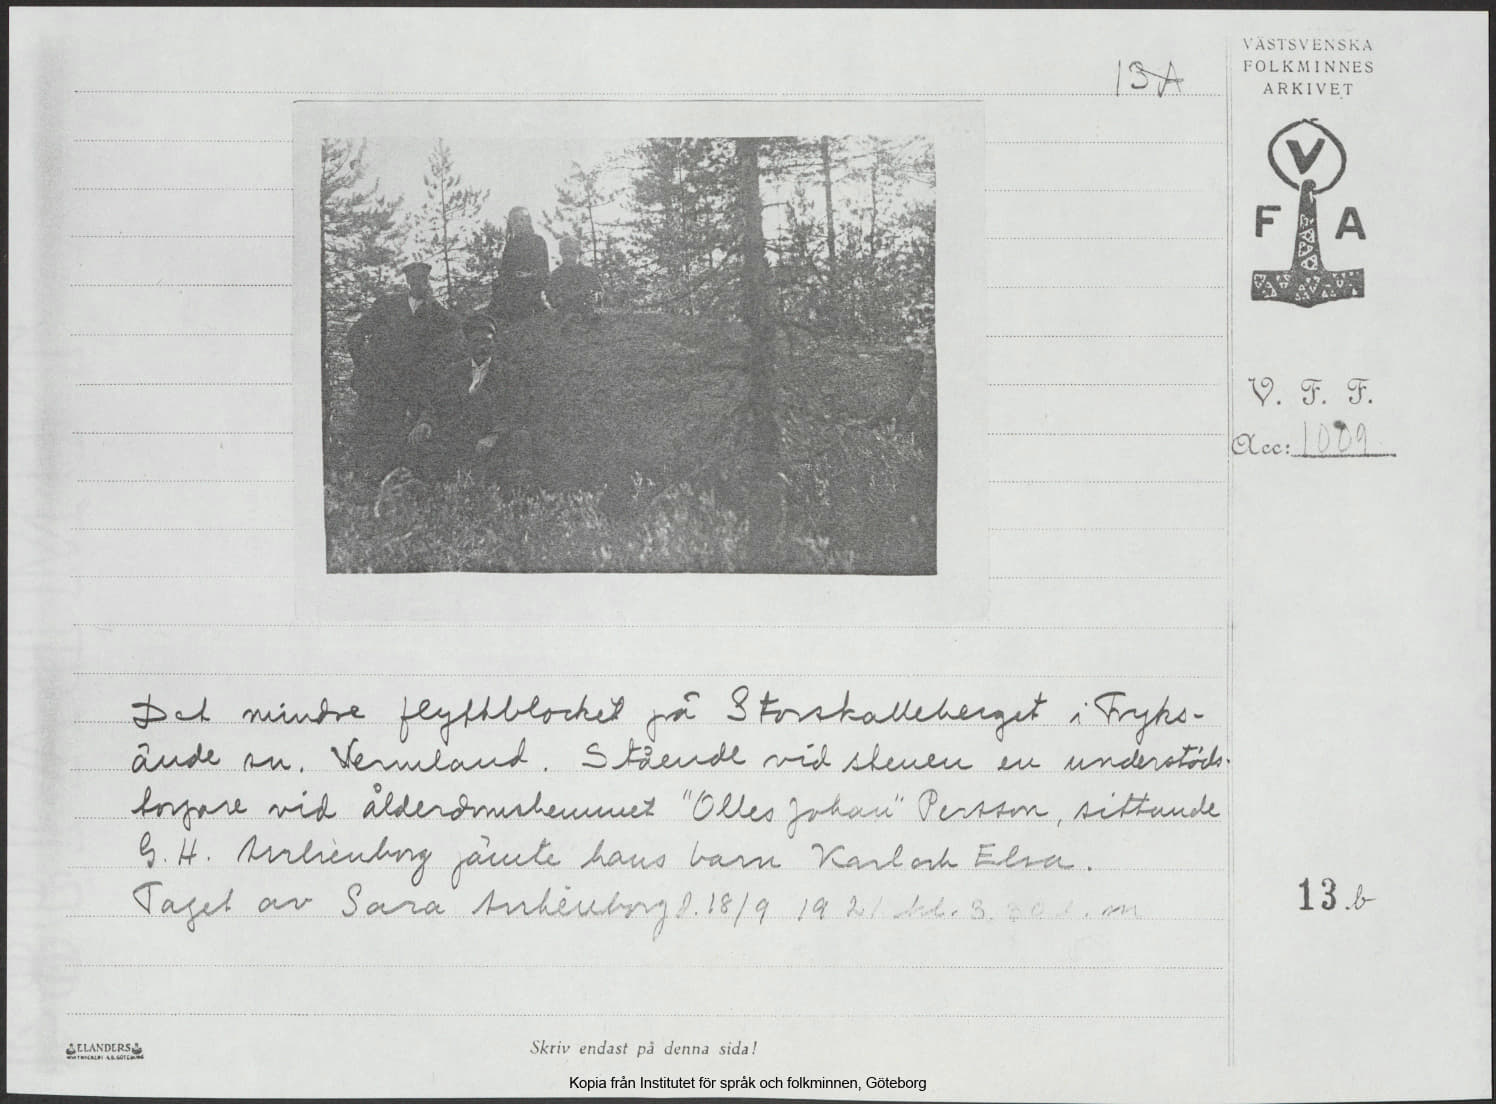 13A
VÄSTSVENSKA
FOLKMINNES
ARKIVET
V
F A
V. F. F.
Acc: 1009
Det mindre flyttblocket på Storskalleberget i Fryks-
ände sn. Vermland. Stående vid stenen en understöds-
torpare vid ålderdomshemmet "Olles Johan" Persson, sittande
G. H. jämte hans barn Karl och Elsa.
Taget av Sara d. 18/9 1921 kl. 3. m
13.b
ELANDERS
Skriv endast på denna sida!
Kopia från Institutet för språk och folkminnen, Göteborg